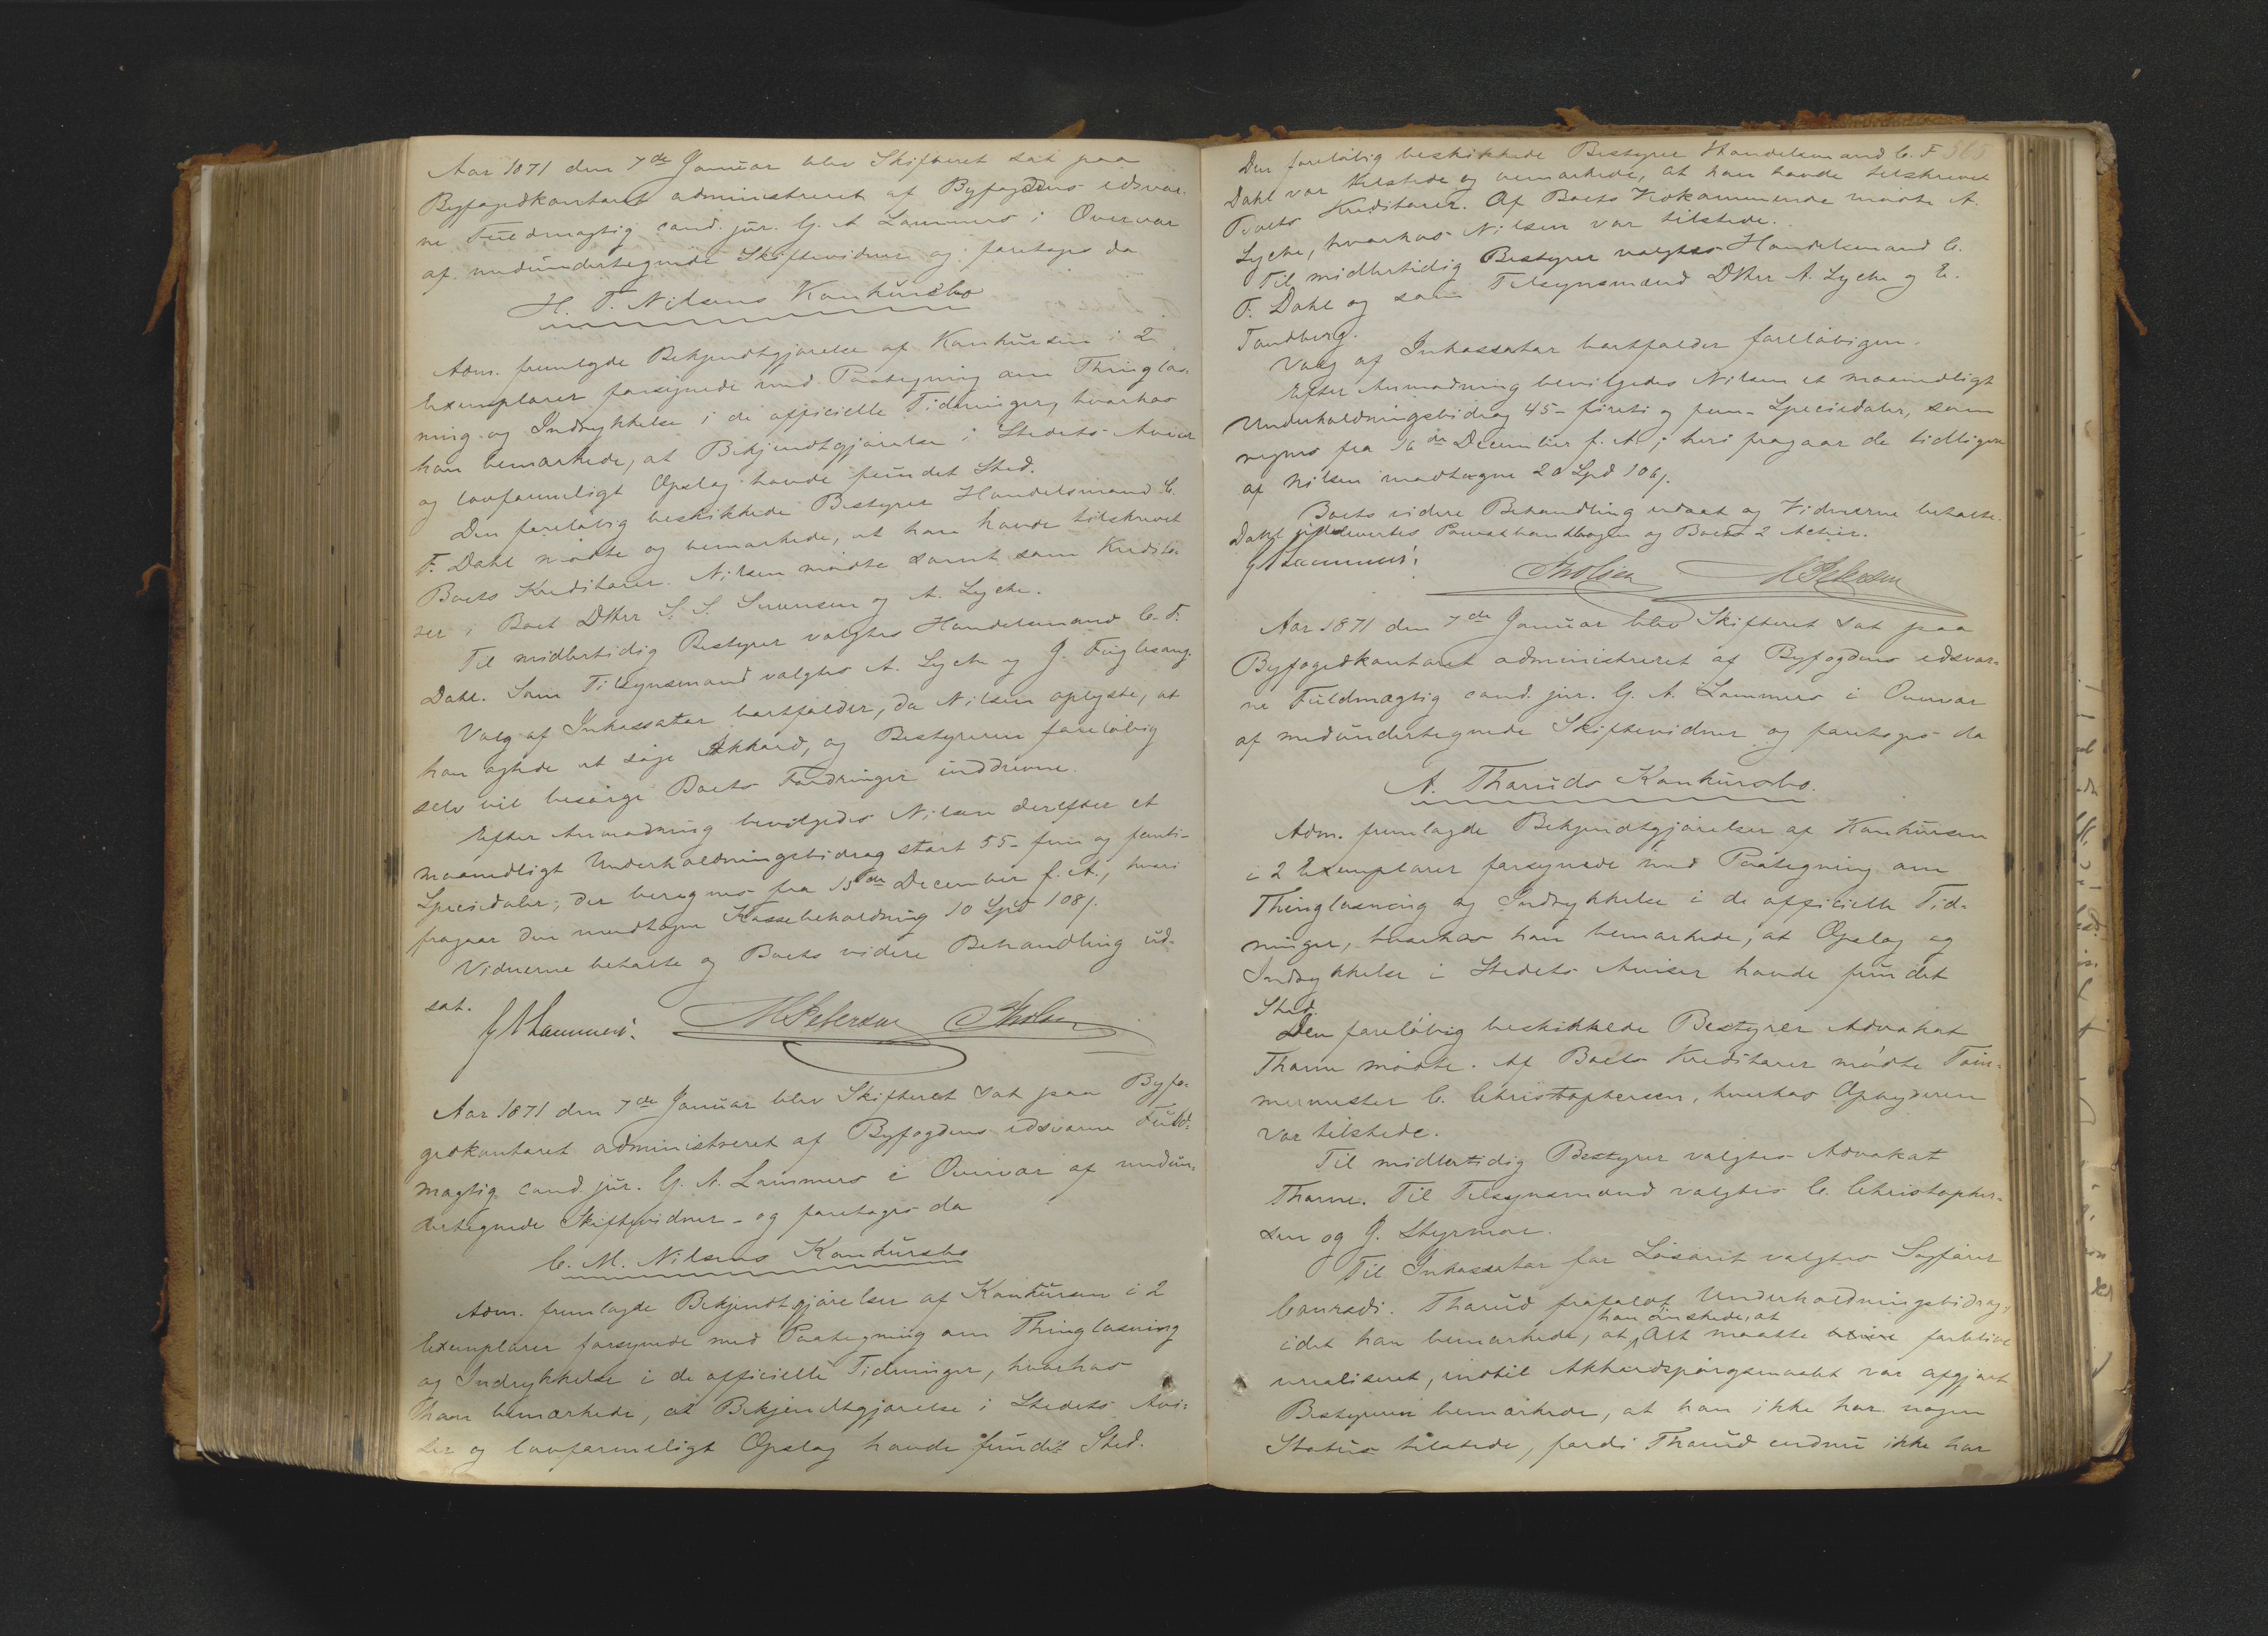 Aar 1871 den 7de Januar blev Skifteret sat paa
Byfogedkontoret administreret af Byfogdens edsvor-
ne Fuldmægtig cand. jur. G. A Lammers i Overvær
af medundertegnede Skiftevidner og foretoges da
H. T. Nilsens Konkursbo
Adm. fremlagde Bekjendtgjørelse af Konkursen i 2
Exemplarer forsynede med Paategning om Thinglæs-
ning og Indrykkelse i de officielle Tidninger, hvorhos
han bemærkede, at Bekjendtgjørelse i Stedets Aviser
og lovformeligt Opslag havde fundet Sted.
Den foreløbig beskikkede Bestyrer Handelsmand C.
F. Dahl mødte og bemærkede, at han havde tilskrevet
Boets Kreditorer. Nilsen mødte samt som Kredito-
rer i Boet DHrr S. S. Svensen og A. Lyche.
Til midlertidig Bestyrer valgtes Handelsmand C. F.
Dahl. Som Tilsynsmænd valgtes A. Lyche og J. Fuglesang.
Valg af Inkassator bortfalder, da Nilsen oplyste, at
han agtede at søge Akkord, og Bestyreren foreløbig
selv vil besørge Boets Fordringer inddrevne.
Efter Anmodning bevilgedes Nilsen derefter et
maanedligt Underholdningsbidrag stort 55 - fem og femti -
Speciedaler; der beregnes fra 15de December f. A., hvori
fragaar den modtagne Kassebeholdning 10 Spd 108 s.
Vidnerne betalte og Boets videre Behandling ud-
sat.
G A Lammers. M Petersen Tholsen
Aar 1871 den 7de Januar blev Skifteret sat paa Byfo-
gedkontoret administreret af Byfogdens edsvorne Fuld-
mægtig cand. jur. G. A. Lammers i Overvær af medun-
dertegnede Skiftevidner - og foretoges da
C. M. Nilsens Konkursbo
Adm. fremlagde Bekjendtgjørelser af Konkursen i 2
Exemplarer forsynede med Paategning om Thinglæsning
og Indrykkelse i de officielle Tidninger, hvorhos
han bemærkede, at Bekjendtgjørelse i Stedets Avi-
ser og lovformeligt Opslag havde fundet Sted.
565
Den foreløbig beskikkede Bestyrer Handelsmand C. F
Dahl var tilstede og bemærkede, at han havde tilskrevet
Boets Kreditorer. Af Boets Vedkommende mødte A.
Lyche, hvorhos Nilsen var tilstede.
Til midlertidig Bestyrer valgtes Handelsmand C.
F. Dahl og som Tilsynsmænd DHrr A. Lyche og E.
Tandberg.
Valg af Inkassator bortfalder foreløbigen.
Efter Anmodning bevilgedes Nilsen et maanedligt
Underholdningsbidrag 45 - fireti og fem - Speciedaler, som
regnes fra 16de December f. A.; heri fragaar de tidligere
af Nilsen modtagne 20 Spd 106 s.
Boets videre Behandling udsat og Vidnerne betalte.
Dahl udleveredes Panteboken og Boets 2 Actier.
G A Lammers. Tholsen M Petersen
Aar 1871 den 7de Januar blev Skifteret sat paa
Byfogedkontoret administreret af Byfogdens edsvor-
ne Fuldmægtig cand. jur. G. A. Lammers i Overvær
af medundertegnede Skiftevidner og foretoges da
A. Tharuds Konkursbo.
Adm. fremlagde Bekjendtgjørelser af Konkursen
i 2 Exemplarer forsynede med Paategning om
Thinglæsning og Indrykkelse i de officielle Tid-
ninger, hvorhos han bemærkede, at Opslag og
Indrykkelse i Stedets Aviser havde fundet
Sted.
Den foreløbig beskikkede Bestyrer Advokat
Thorne mødte. Af Boets Kreditorer mødte Tøm-
mermester C. Christophersen, hvorhos Opbyderen
var tilstede.
Til midlertidig Bestyrer valgtes Advokat
Thorne. Til Tilsynsmænd valgtes C. Christopher-
sen og J. Styrmoe.
Til Inkassator for Løsørit valgtes Sagfører
Conradi. Tharud frafaldt Underholdningsbidrag,
han ønskede, at
idet han bemærkede, at Alt maatte forblive
urealiseret, indtil Akkordspørgsmaalet var afgjort
Bestyreren bemærkede, at han ikke har nogen
Status tilstede, fordi Tharud endnu ikke har